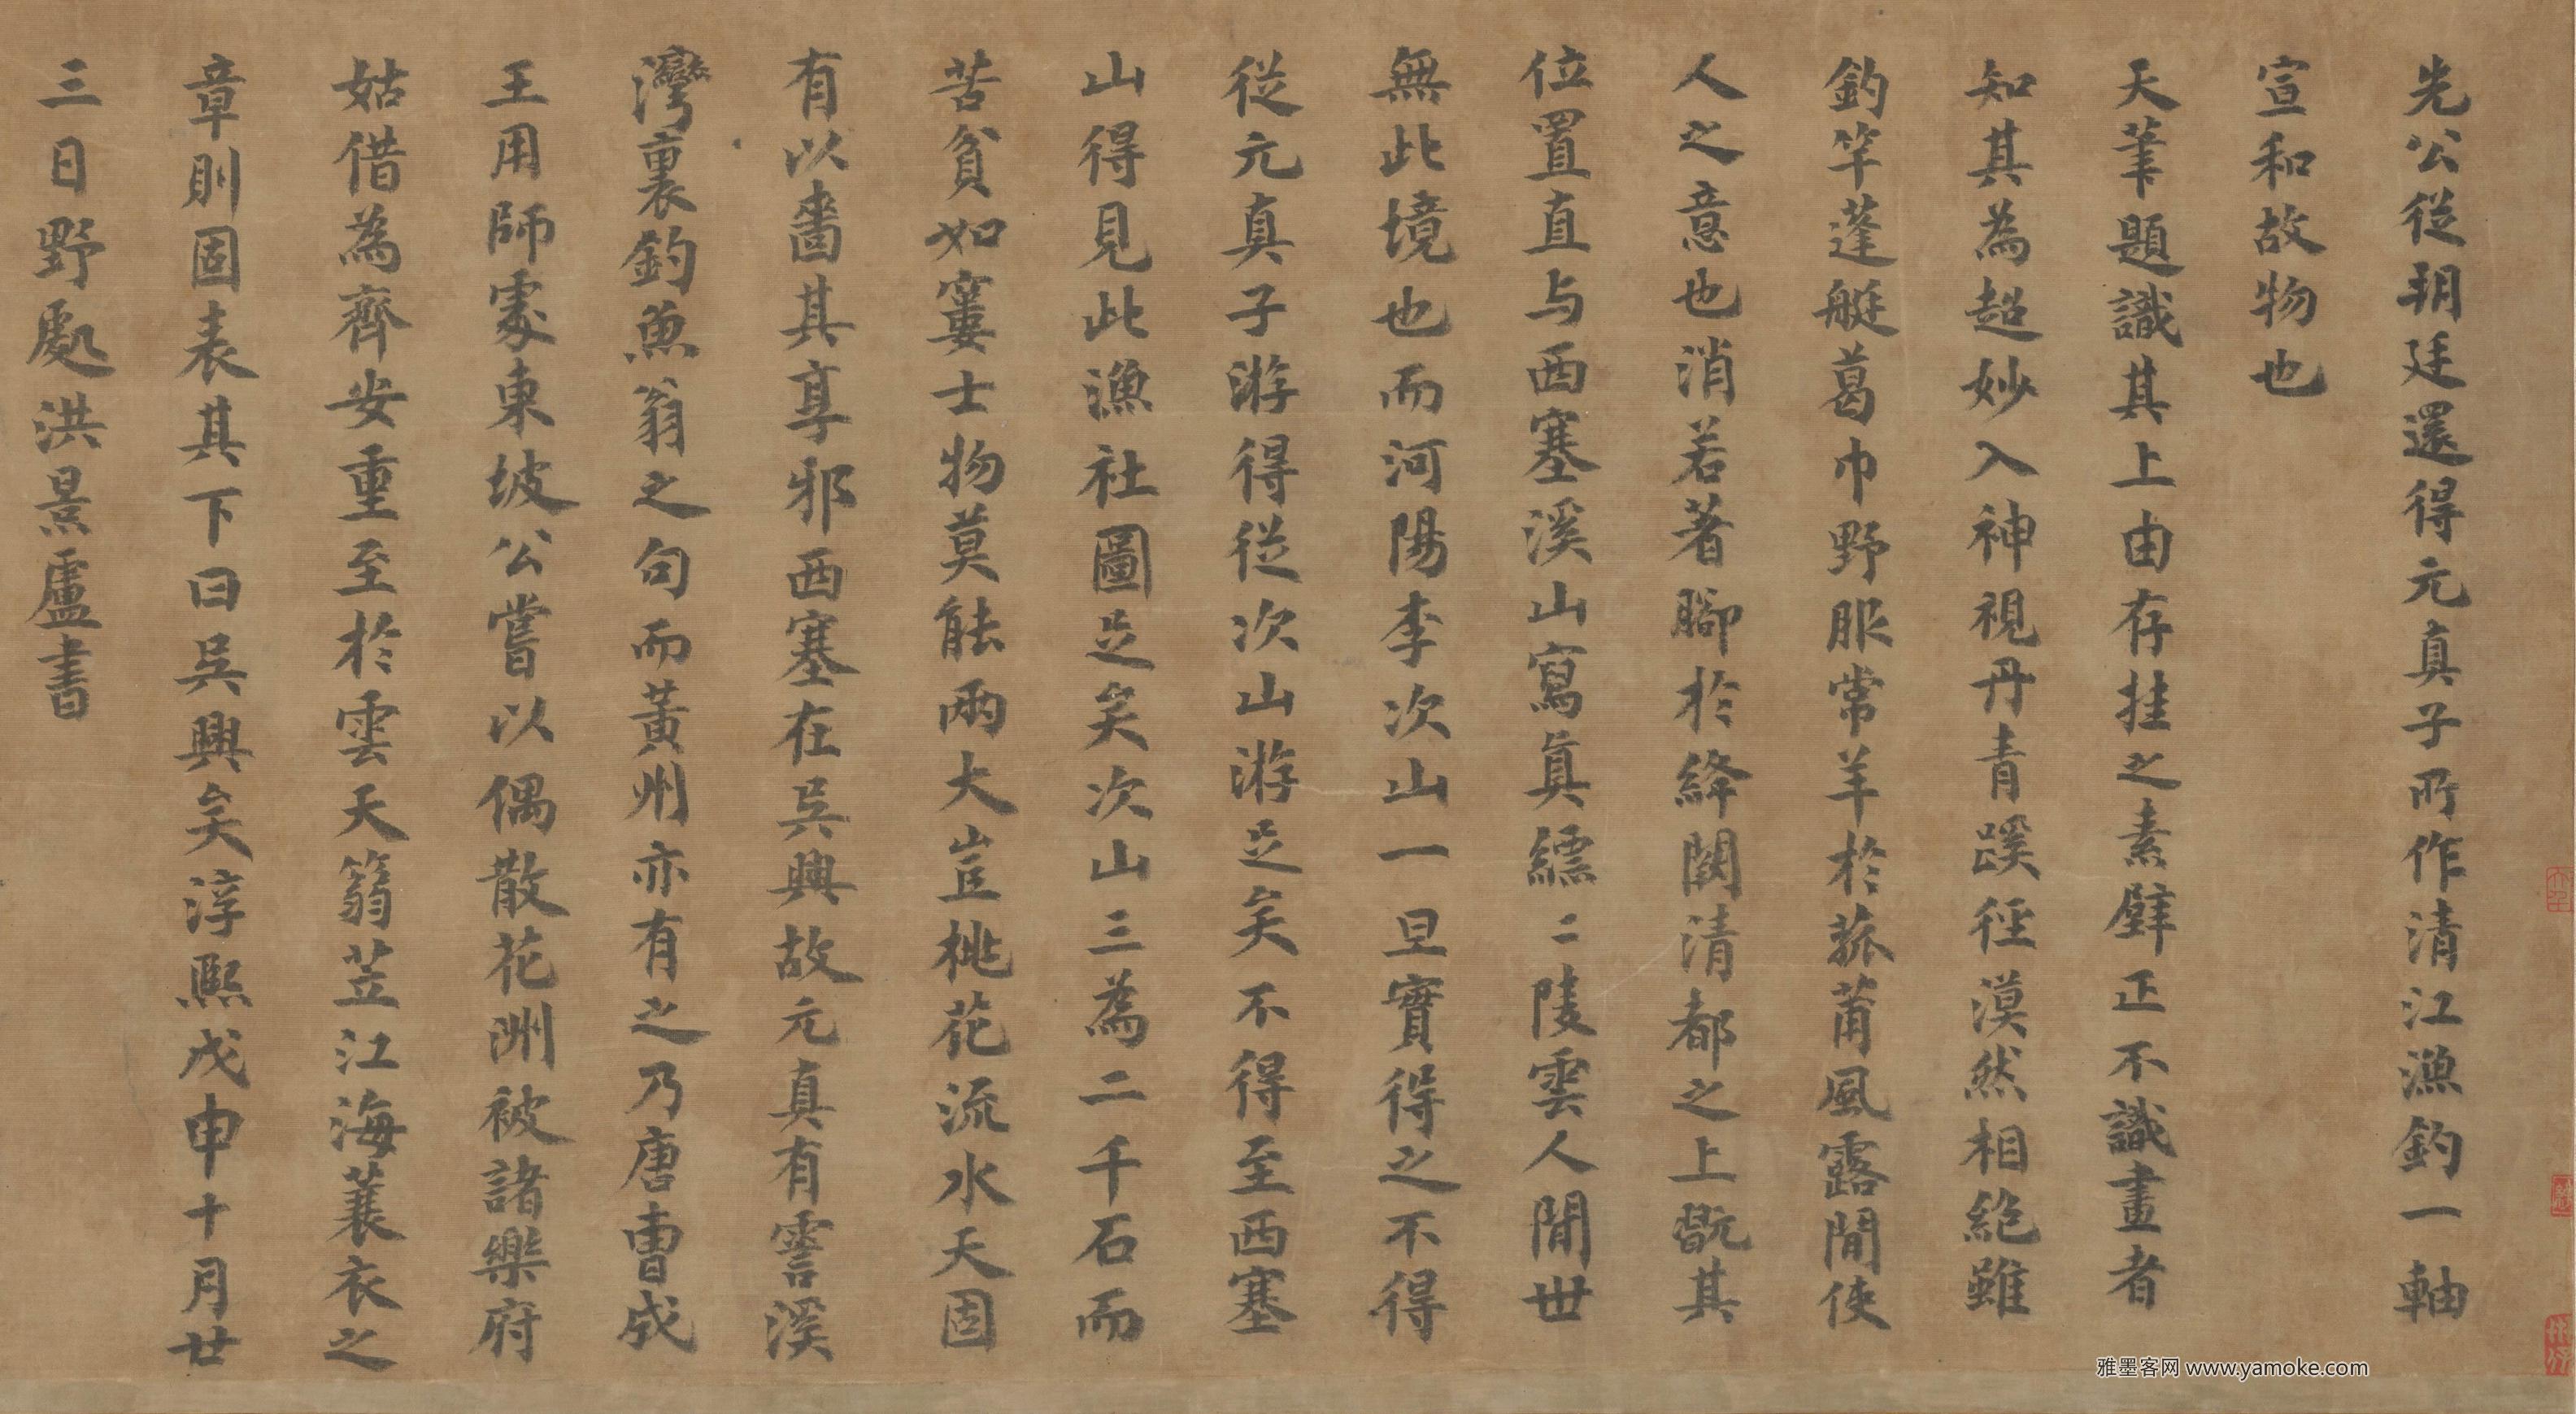 先公從朝廷還得元真子所作清江漁釣一軸
宣和故物也
天筆題識其上由存挂之素壁正不識畫者
知其為超妙入神視丹青蹊徑漠然相絶雖
釣竿蓬艇葛巾野服常羊於菰蒲風露間使
人之意也消若著腳於絳闕清都之上翫其
位置直与西塞溪山寫真縹〻陵雲人閒世
無此境也而河陽李次山一旦實得之不得
從元真子游得從次山游足矣不得至西塞
山得見此漁社圖足矣次山三為二千石而
苦貧如窶士物莫能兩大豈桃花流水天固
有以嗇其享邪西塞在吳興故元真有霅溪
灣裏釣魚翁之句而黃州亦有之乃唐曹成
王用師處東坡公嘗以偶散花洲被諸樂府
姑借為齊安重至於雲天篛笠江海蓑衣之
章則固表其下曰吳興矣淳熙戊申十月廿
三日野處洪景盧書
雅墨客网 www.yamoke.com